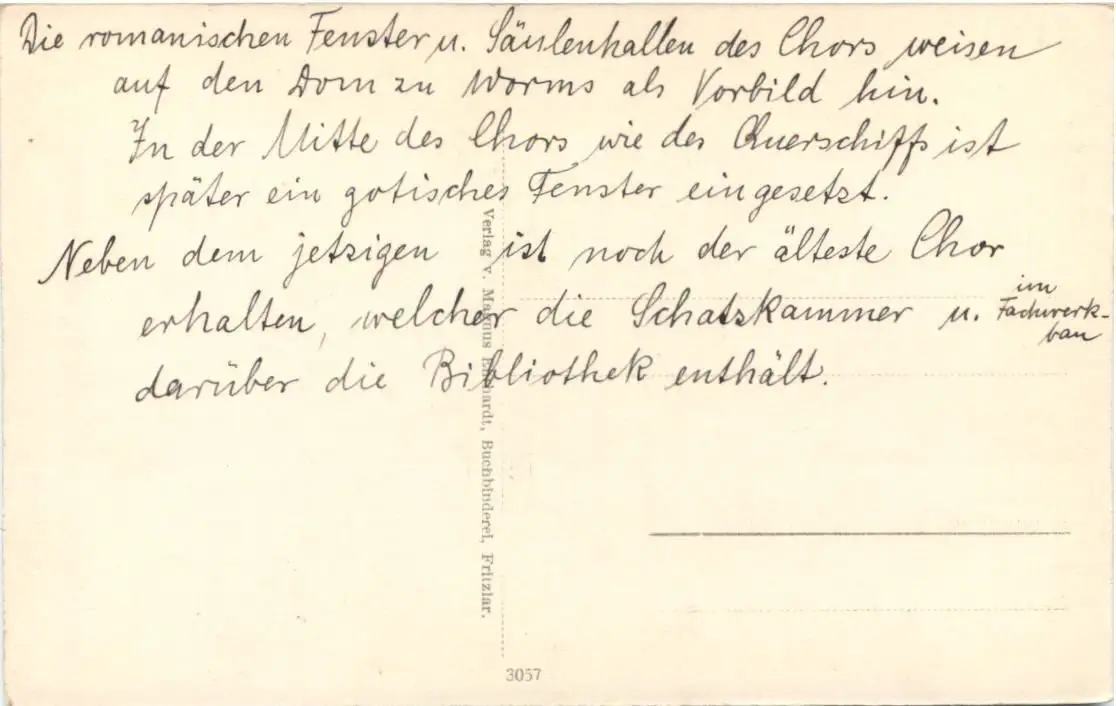 Die romanischen Fenster u. Säulenhallen des Chors weisen
auf den Dom zu Worms als Vorbild hin.
In der Mitte des Chors wie des Querschiffs ist
später ein gotisches Fenster eingesetzt.
Neben dem jetzigen ist noch der älteste Chor
erhalten, welcher die Schatzkammer u. im Fachwerk-
bau
darüber die Bibliothek enthält.
Verlag v. Magnus Ehrhardt, Buchbinderei, Fritzlar.
3057